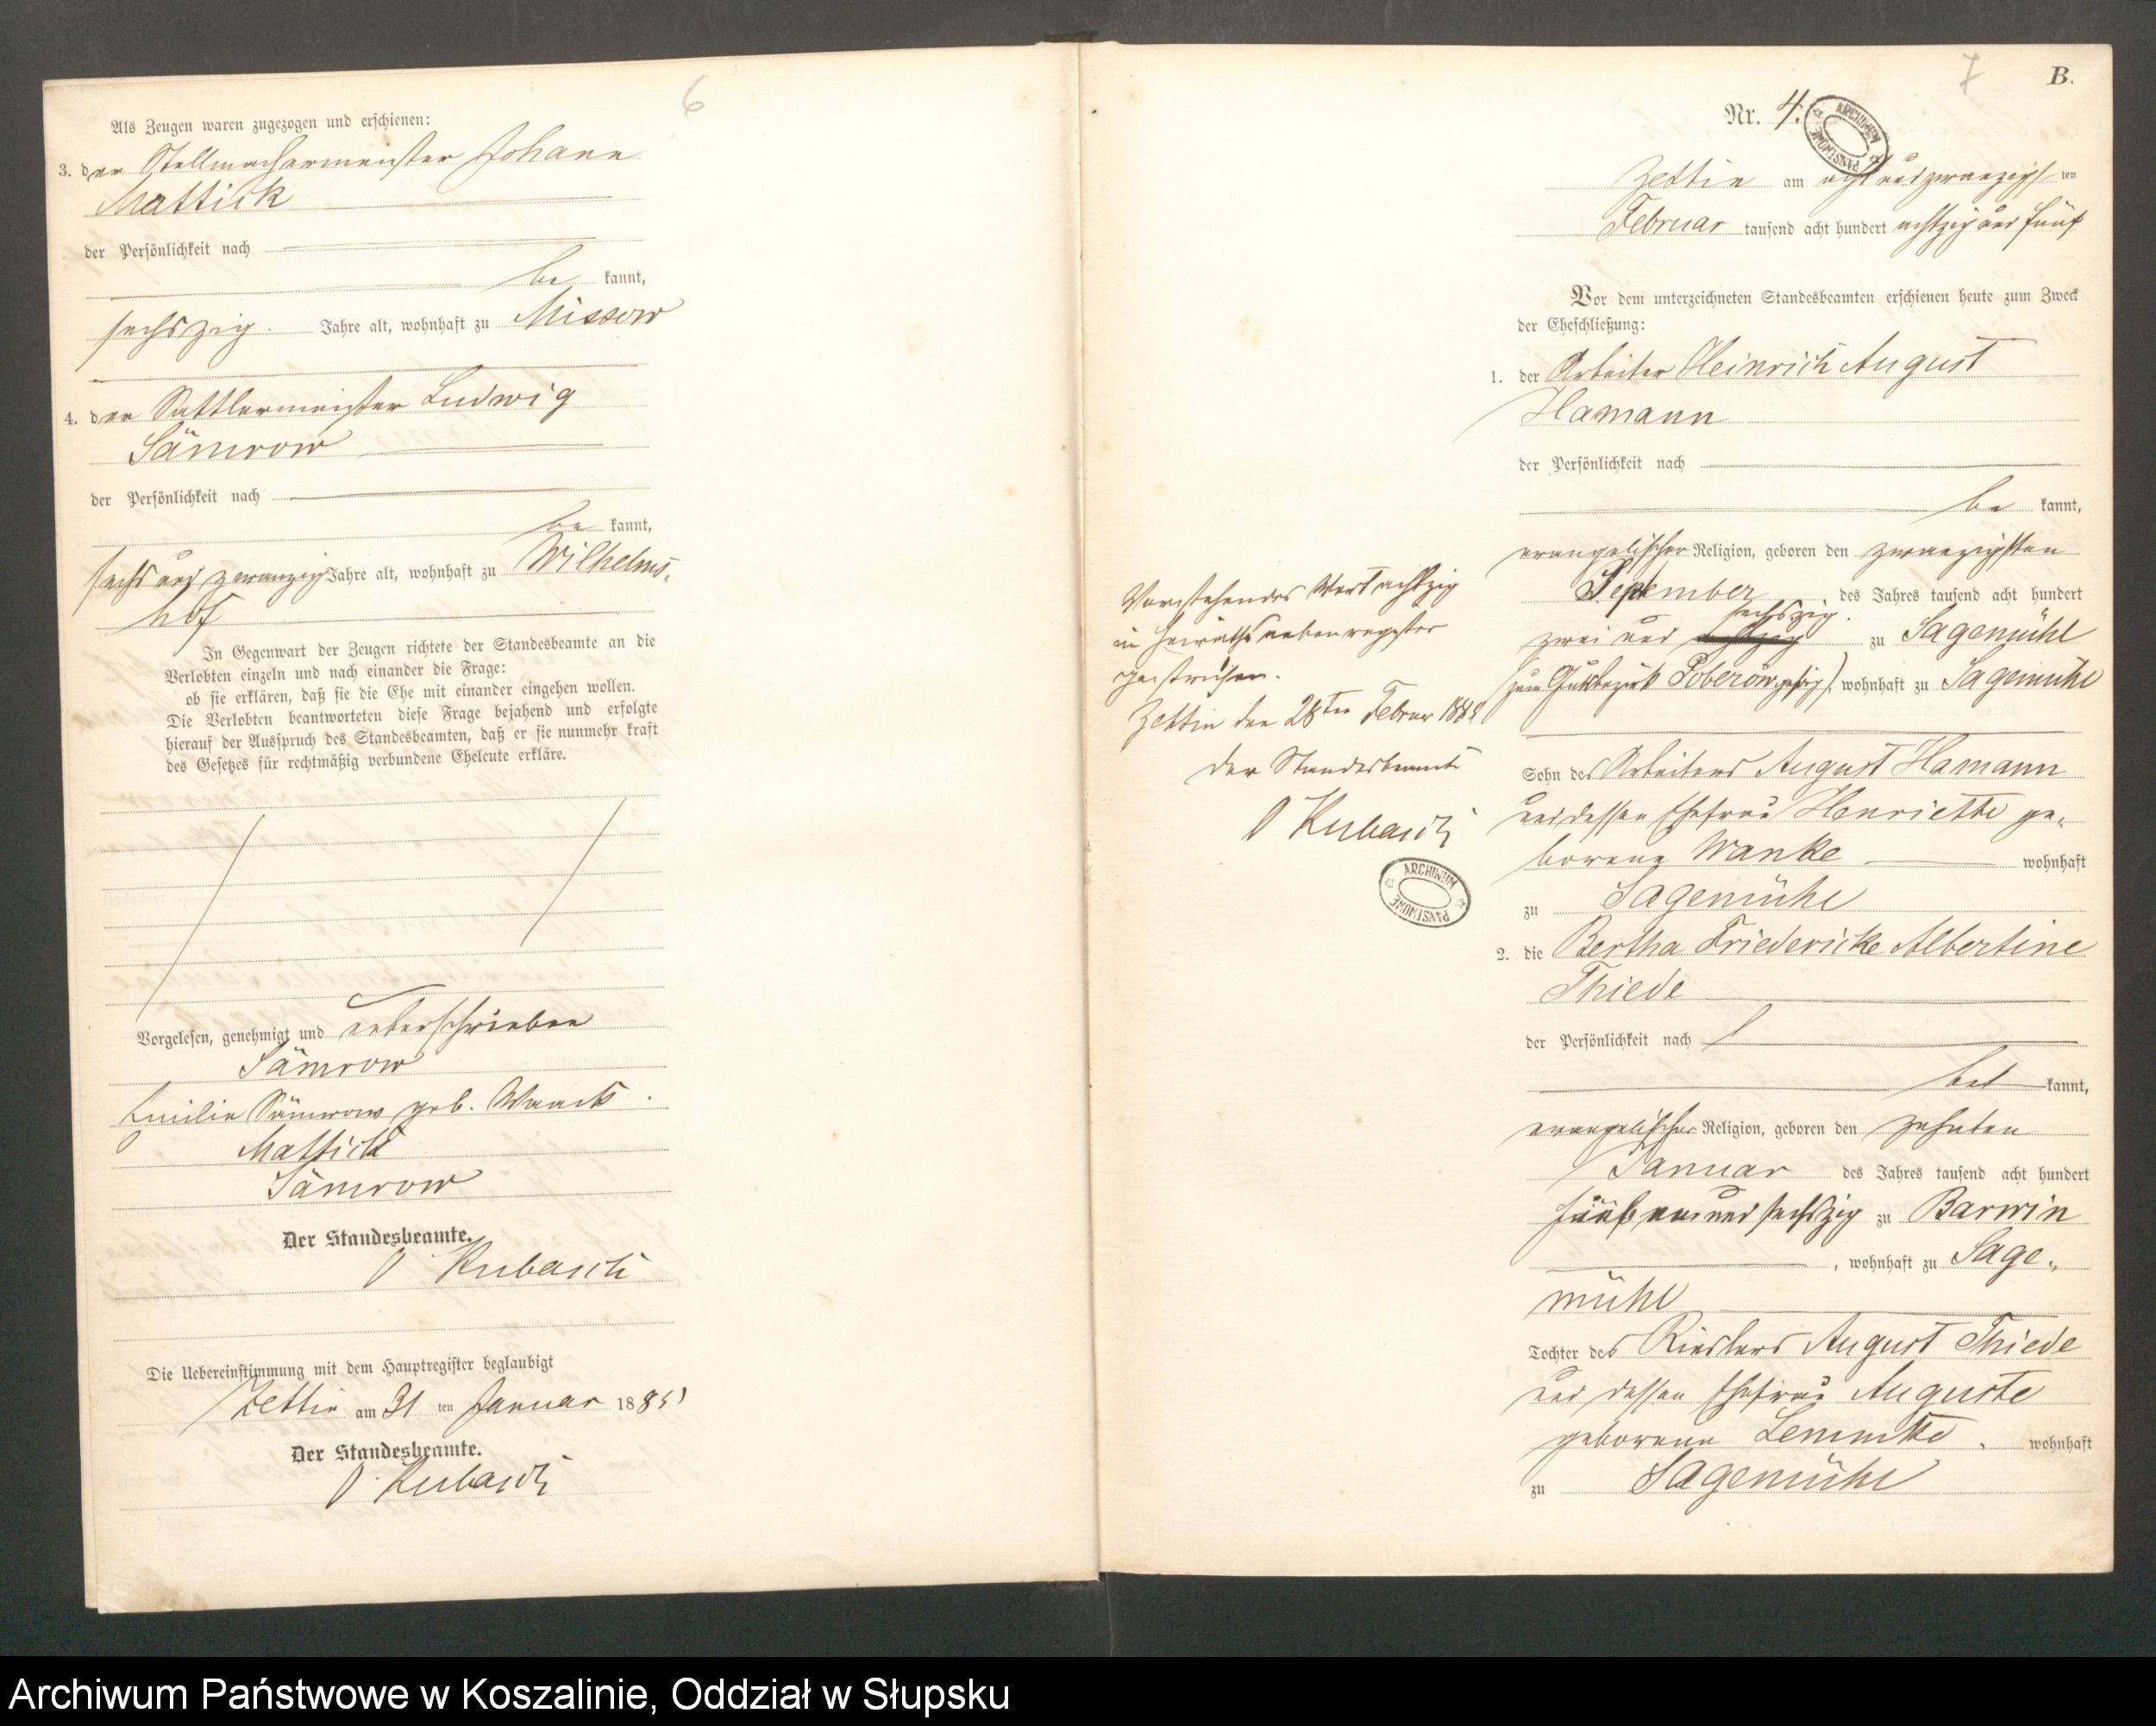 6
Als Zeugen waren zugezogen und erschienen:
3. der Stellmachermeister Johann
Mattick
der Persönlichkeit nach
be kannt,
sechszig Jahre alt, wohnhaft zu Missow
4. der Sattlermeister Ludwig
Sämrow
der Persönlichkeit nach
be kannt,
sechs und zwanzig Jahre alt, wohnhaft zu Wilhelms-
hof
In Gegenwart der Zeugen richtete der Standesbeamte an die
Verlobten einzeln und nach einander die Frage:
ob sie erklären, daß sie die Ehe mit einander eingehen wollen.
Die Verlobten beantworteten diese Frage bejahend und erfolgte
hierauf der Ausspruch des Standesbeamten, daß er sie nunmehr kraft
des Gesetzes für rechtmäßig verbundene Eheleute erkläre.
Vorgelesen, genehmigt und unterschrieben
Sämrow
Emilie Sämrow geb. Waack.
Mattick
Sämrow
Der Standesbeamte.
Kubasch
Die Uebereinstimmung mit dem Hauptregister beglaubigt
Zettin am 31 ten Januar 1885
Der Standesbeamte.
Kubasch
7
B.
Nr. 4.
ARCHIWUM PAŃSTWOWE
Zettin am acht und zwanzigs ten
Februar tausend acht hundert achtzig und fünf
Vor dem unterzeichneten Standesbeamten erschienen heute zum Zweck
der Eheschließung:
1. der Arbeiter Heinrich August
Hamann
der Persönlichkeit nach
be kannt,
evangelischer Religion, geboren den zwanzigsten
September des Jahres tausend acht hundert
sechszig.
zwei und achtzig zu Sagemühl
(zum Gutsbezirk Poberow gehörig), wohnhaft zu Sagemühl
Sohn des Arbeiters August Hamann
und dessen Ehefrau Henriette ge-
borene Wanke wohnhaft
zu Sagemühl
2. die Bertha Friedericke Albertine
Thiede
der Persönlichkeit nach
be kannt,
evangelischer Religion, geboren den zehnten
Januar des Jahres tausend acht hundert
fünf und sechszig zu Barwin
, wohnhaft zu Sage-
mühl
Tochter des August Thiede
und dessen Ehefrau Auguste
geborene Lemmke, wohnhaft
zu Sagemühl
Vorstehendes Wort achtzig
in Heirathsnebenregister
gestrichen.
Zettin den 28ten Februar 1885
Der Standesbeamte
Kubasch
ARCHIWUM PAŃSTWOWE
Archiwum Państwowe w Koszalinie, Oddział w Słupsku